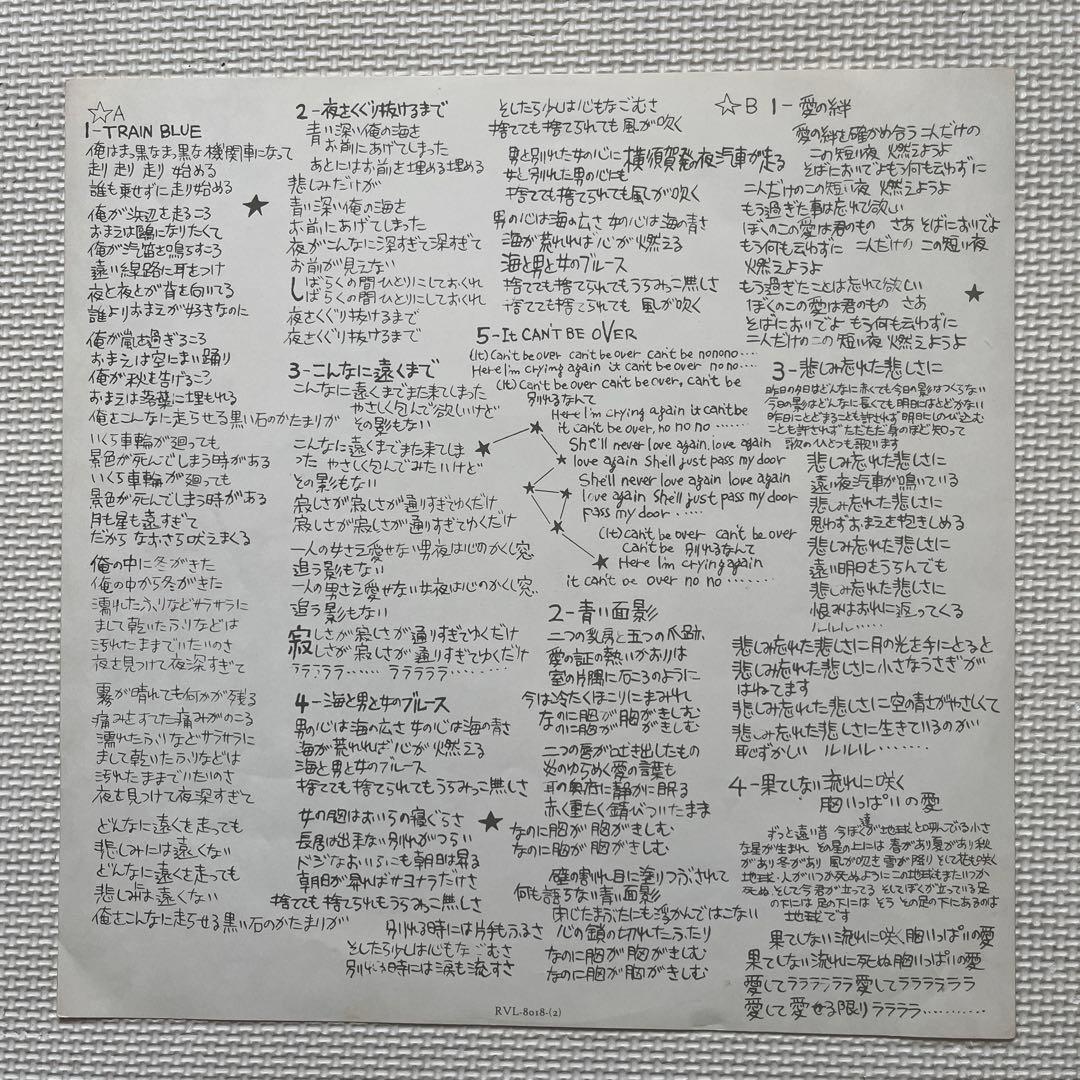 ☆A
1-TRAIN BLUE
俺はまっ黒なまっ黒な機関車になって
走り 走り 走り 始める
誰も乗せずに走り始める
俺が浜辺を走るころ
おまえは鴎になりたくて
俺が汽笛を鳴らすころ
遠い線路に耳をつけ
夜と夜とが背を向いてる
誰よりおまえが好きなのに
俺が嵐をむ過ぎるころ
おまえは空にまい踊り
俺が秋を告げるころ
おまえは落葉に埋もれる
俺をこんなに走らせる黒い石のかたまりが
いくら車輪が廻っても
景色が死んでしまう時がある
いくら車輪が廻っても
景色が死んでしまう時がある
月も星も遠すぎて
だから なおさら吠えまくる
俺の中に冬がきた
俺の中から冬がきた
濡れたふりなどサラサラに
まして乾いたふりなどは
汚れたままでいたいのさ
夜を見つけて夜深すぎて
霧が晴れても何かが残る
痛みをすてた痛みがのこる
濡れたふりなどサラサラに
まして乾いたふりなどは
汚れたままでいたいのさ
夜を見つけて夜深すぎて
どんなに遠くを走っても
悲しみには遠くない
どんなに遠くを走っても
悲しみには遠くない
俺をこんなに走らせる黒い石のかたまりが
2-夜をくぐり抜けるまで
青い深い俺の海を
お前にあげてしまった
あとにはお前を埋める埋める
悲しみだけが
青い深い俺の海を
お前にあげてしまった
夜がこんなに深すぎて深すぎて
お前が見えない
しばらくの間ひとりにしておくれ
しばらくの間ひとりにしておくれ
夜をくぐり抜けるまで
夜をくぐり抜けるまで
3-こんなに遠くまで
こんなに遠くまでまた来てしまった
やさしく包んで欲しいけど
その影もない
こんなに遠くまでまた来てしま
った やさしく包んでみたいけど
その影もない
寂しさが寂しさが通りすぎてゆくだけ
寂しさが寂しさが通りすぎてゆくだけ
一人の女さえ愛せない男夜は心のかくし窓
追う影もない
一人の男さえ愛せない女夜は心のかくし窓
追う影もない
寂しさが寂しさが通りすぎてゆくだけ
寂しさが寂しさが通りすぎてゆくだけ
ラララララ…… ラララララ………
4-海と男と女のブルース
男の心は海の広さ 女の心は海の青さ
海が荒れれば心が燃える
海と男と女のブルース
捨てても捨てられてもうらみっこ無しさ
女の胸はおいらの寝ぐらさ
長居は出来ない別れがつらい
ドジなおいらにも朝日は昇る
朝日が昇ればサヨナラだけさ
捨てても捨てられもうらみっこ無しさ
別れる時には片手もふるさ
そしたら少しは心もなごむさ
別れる時には涙も流すさ
そしたら少しは心もなごむさ
捨てても捨てられても 風が吹く
男と別れた女の心に 横須賀発の夜汽車が走る
女と別れた男の心にも
捨てても捨てられても風が吹く
男の心は海の広さ 女の心は海の青さ
海が荒れれば心が燃える
海と男と女のブルース
捨てても捨てられてもうらみっこ無しさ
捨てても捨てられても 風が吹く
5-It CAN'T BE OVER
(It) Can't be over can't be over can't be nonono…
Here I'm crying again it can't be over no no…
(It) Can't be over can't be over, can't be
別れるなんて
Here I'm crying again it can't be
it can't be over, no no no ……
She'll never love again, love again
love again She'll just pass my door
She'll never love again love again
love again She'll just pass my door
pass my door ……
(It) can't be over can't be over
Can't be 別れるなんて
Here I'm crying again
it can't be over no no ………
☆B 1-愛の絆
愛の絆を確かめ合う 二人だけの
この短い夜 燃えようよ
そばにおいでよもう何も云わずに
二人だけのこの短い夜 燃えようよ
もう過ぎた事は忘れて欲しい
ぼくのこの愛は君のもの さあ そばにおいでよ
もう何も云わずに 二人だけの この短い夜
燃えようよ
もう過ぎたことは忘れて欲しい
ぼくのこの愛は君のもの さあ
そばにおいでよ もう何も云わずに
二人だけの この 短い夜 燃えようよ
2-青い面影
二つの乳房と五つの爪跡
愛の証の熱いかおりは
室の片隅に石ころのように
今は冷たくほこりにまみれ
なのに胸が胸がきしむ
なのに胸が胸がきしむ
二つの唇が吐き出したもの
炎のゆらめく愛の言葉も
耳の奥底に静かに眠る
赤く重たく錆びついたまま
なのに胸が胸がきしむ
なのに胸が胸がきしむ
壁の割れ目に塗りつぶされて
何も語らない青い面影
閉じたまぶたにも浮かんではこない
心の鎖の切れたふたり
なのに胸が胸がきしむ
なのに胸が胸がきしむ
3-悲しみ忘れた悲しさに
昨日の夕日はどんなに赤くても今日の影はつくらない
今日の影はどんなに長くても明日にはとどかない
昨日にとどまることも許されず明日にしのび込む
ことも許されずただただ身のほど知って
歌のひとつも歌います
悲しみ忘れた悲しさに
遠い夜汽車が鳴いている
悲しみ忘れた悲しさに
思わずおまえを抱きしめる
悲しみ忘れた悲しさに
遠い明日をうらんでも
悲しみ忘れた悲しさに
恨みはおれに返ってくる
ルルルル……
悲しみ忘れた悲しさに月の光を手にとると
悲しみ忘れた悲しさに小さなうさぎが
はねてます
悲しみ忘れた悲しさに空の青さがやさしくて
悲しみ忘れた悲しさに生きているのが
恥ずかしい ルルルル………
4-果てしない流れに咲く
胸いっぱいの愛
ずっと遠い昔 今ぼく達が地球と呼んでる小さ
な星が生まれ その星の上には 春があり夏があり秋
があり冬があり 風が吹き 雪が降り そして花も咲く
地球・人がいつか死ぬようにこの地球もまたいつか
死ぬ そして今君が立ってる そしてぼくが立っている足
の下には 足の下には そう その足の下にあるのは
地球です
果てしない流れに咲く胸いっぱいの愛
果てしない流れに死ぬ胸いっぱいの愛
愛してララララララ愛してララララララ
愛して愛せる限りララララ…………
RVL-8018-(2)